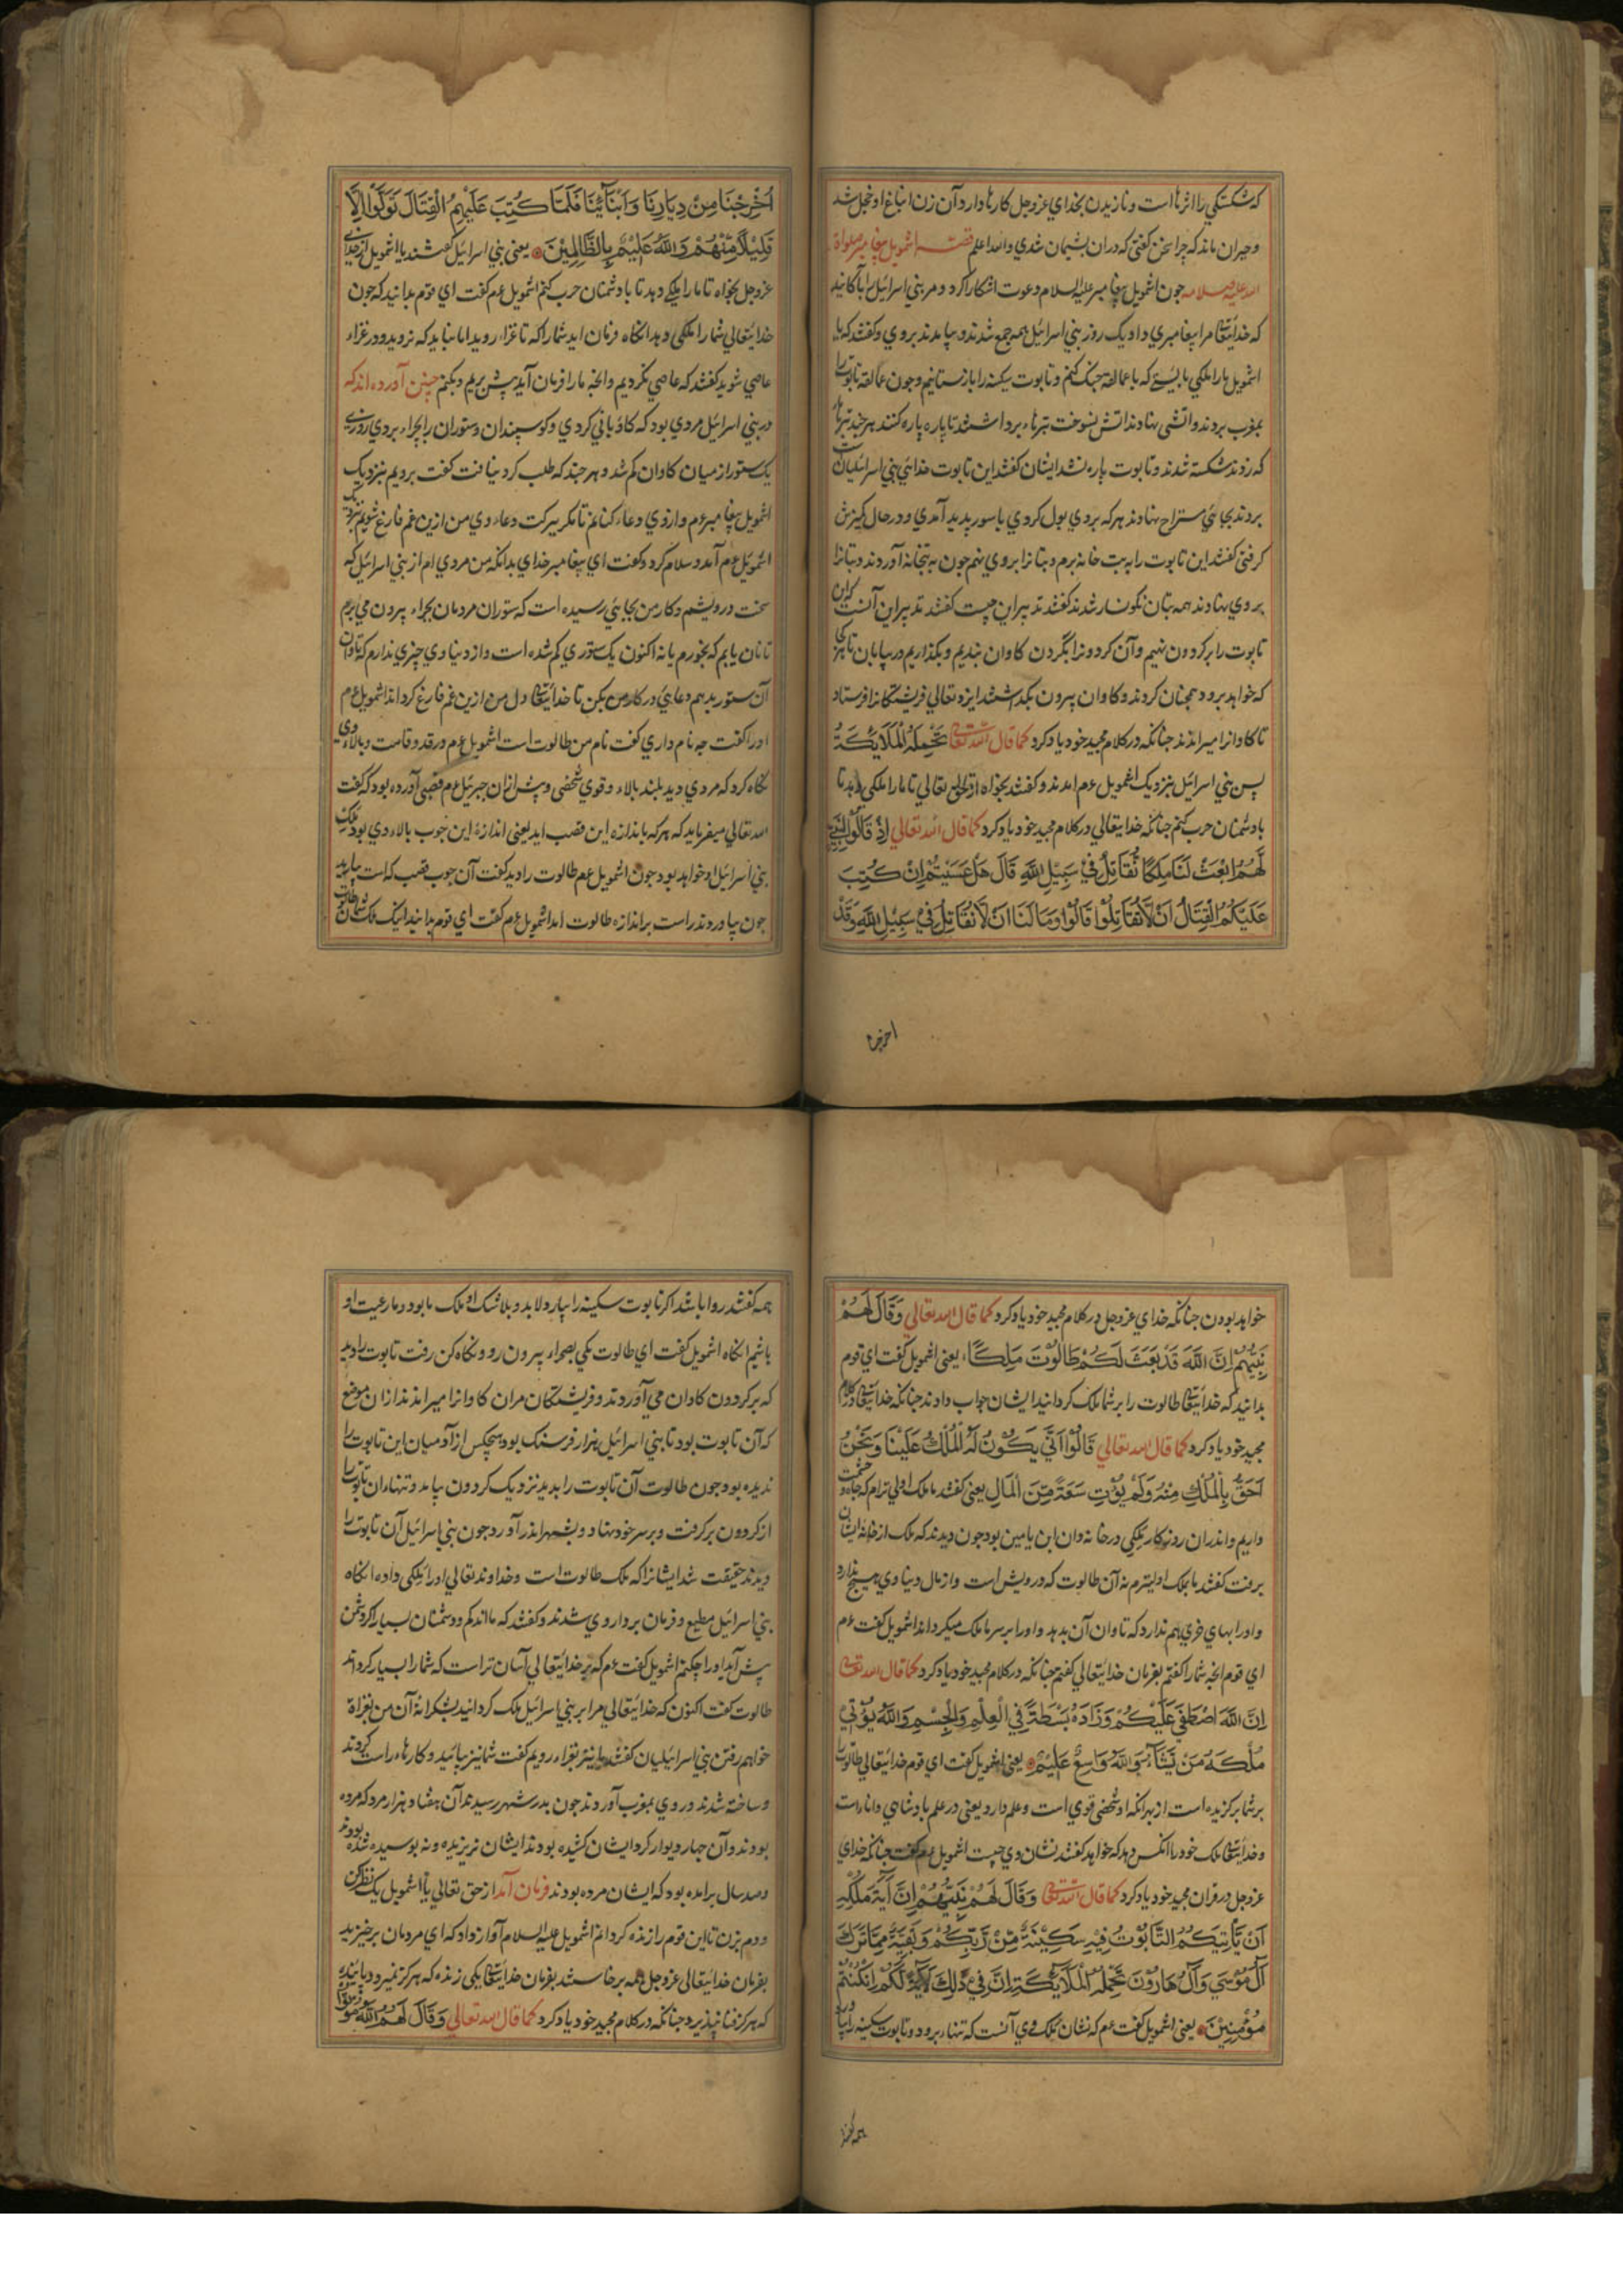 که شکستکی را اثرها است و نازیدن بخدای عزوجل کارها دارد آن زن انباغ او خجل شد
وحیران ماند که چرا سخن کفتی که دران پشیمان شدی والله اعلم قصه اشمویل پیغامبر صلواة
الله علیه وسلامه جون اشمویل پیغامبر علیه السلام دعوت اشکارا کرد و مر بنی اسرائیل را آکانید
که خدایتعا مرا پیغامبری داد یک روز بنی اسرائیل همه جمع شدند و بیامدند بروی و کفتند که یا
اشمویل مارا ملکی بایستی که با عمالقه جنک کنم و تابوت سکینه را بازستانیم وجون عمالقه تابوترا
بمغرب بردند واتشی نهادند اتش نسوخت تبرها برداشتند تا پاره پاره کنند هر چند تبرها
که زدند شکسته شدند و تابوت پاره نشد ایشان کفتند این تابوت خدائی بنی اسرائیلیان است
بردند بجائی مستراح نهادند هر که بروی بول کردی باسور پدید آمدی و درحال کیزش
کرفتی کفتند این تابوت را به بت خانه برم و بتانرا بروی نهم جون به بتخانه آوردند و بتانرا
بروی نهادند همه بتان نکونسار شدند کفتند تدبیر این چیست کفتند تدبیر این آنست که این
تابوت را بر کردون نهیم وآن کردونرا بکردن کاوان بندیم و بکذاریم در بیابان تا هر کجا
که خواهد برود همچنان کردند و کاوان بیرون بکذاشتند ایزد تعالی فریشتکانرا فرستاد
تا کاوانرا میراندند جنانکه در کلام مجید خود یاد کرد کما قال الله تعا تَحْمِلُهُ الْمَلَائِكَةُ
پس بنی اسرائیل بنزدیک اشمویل عم امدند و کفتند بخواه از خالق تعالی تا ما را ملکی دهد تا
با دشمنان حرب کنم جنانکه خدایتعالی در کلام مجید خود یاد کرد کما قال الله تعالی اِذْ قَالُوا لِنَبِيٍّ
لَّهُمُ ابْعَثْ لَنَا مَلِكًا نُّقَاتِلْ فِي سَبِيلِ اللَّهِ قَالَ هَلْ عَسَيْتُمْ اِنْ كُتِبَ
عَلَيْكُمُ الْقِتَالُ اَنْ لَّا تُقَاتِلُوا قَالُوا وَمَا لَنَا اَنْ لَا نُقَاتِلَ فِي سَبِيلِ اللَّهِ وَقَدْ
اخرجنا
اُخْرِجْنَا مِنْ دِيَارِنَا وَاَبْنَآئِنَا فَلَمَّا كُتِبَ عَلَيْهِمُ الْقِتَالُ تَوَلَّوْا اِلَّا
قَلِيْلًا مِّنْهُمْ وَاللَّهُ عَلِيْمٌ بِالظَّالِمِيْنَ یعنی بنی اسرائیل کفتند یا اشمویل از خدای
عزوجل بخواه تا ما را ملکی دهد تا با دشمنان حرب کنم اشمویل عم کفت ای قوم بدانید که جون
خدایتعالی شما را ملکی دهد انکاه فرمان اید شما را که تا غزاء روید اما نباید که نروید و در غزاء
عاصی شوید کفتند که عاصی نکردیم وانجه ما را فرمان آید پیش بریم و بکنم چنین آورده اند که
در بنی اسرائیل مردی بود که کاؤبانی کردی و کوسپندان و ستوران را بچراء بردی روزی
یک ستور از میان کاوان کم شد و هر جند که طلب کرد نیافت کفت برویم بنزدیک
اشمویل پیغامبر عم و از وی دعاء کنانم تا مکر ببرکت دعاء وی من ازین غم فارغ شویم بنزدیک
اشمویل عم آمد و سلام کرد و کفت ای پیغامبر خدای بدانکه من مردی ام از بنی اسرائیل که
سخت درویشم و کار من بجائی رسیده است که ستوران مردمان بچراء بیرون می برم
تا نان یابم که بخورم یا نه اکنون یک ستوری کم شده است و از دنیاوی چیزی ندارم که تاوان
آن ستور بدهم دعایی در کار من بکن تا خدایتعا دل من ازین غم فارغ کرداند اشمویل عم
اورا کفت چه نام داری کفت نام من طالوت است اشمویل عم در قد و قامت و بالاء وی
نکاه کرد که مردی دید بلند بالاء و قوی شخصی و پیش ازان جبرئیل عم قصبی آورده بود که کفت
الله تعالی میفرماید که هر که باندازه این قصب اید یعنی اندازهٔ این چوب بالاء وی بود ملک
بنی اسرائیل او خواهد بود جون اشمویل عم طالوت را دید کفت آن جوب قصب کجاست بیارید
جون بیاوردند راست براندازه طالوت امد اشمویل عم کفت ای قوم بدانید اینک ملک شما طالوت
خواهد بودن جنانکه خدای عزوجل در کلام مجید خود یاد کرد کما قال الله تعالی وَقَالَ لَهُمْ
نَبِيُّهُمْ اِنَّ اللَّهَ قَدْ بَعَثَ لَكُمْ طَالُوْتَ مَلِكًا یعنی اشمویل کفت ای قوم
بدانید که خدایتعا طالوت را بر شما ملک کردانید ایشان جواب دادند جنانکه خدایتعا در کلام
مجید خود یاد کرد کما قال الله تعالی قَالُوْا اَنّٰى يَكُوْنُ لَهُ الْمُلْكُ عَلَيْنَا وَنَحْنُ
اَحَقُّ بِالْمُلْكِ مِنْهُ وَلَمْ يُؤْتَ سَعَةً مِّنَ الْمَالِ یعنی کفتند ما بملک اولی ترام که جاه و حشمت
داریم واندران روزکار ملکی در خانه وان ابن یامین بود جون دیدند که ملک از خانه ایشان
برفت کفتند ما بملک اولیترم نه آن طالوت که درویش است و از مال دنیاوی هیچ ندارد
و اورا بهای خری هم ندارد که تاوان آن بدهد و اورا بر سر ما ملک میکرداند اشمویل کفت عم
ای قوم انجه شما را کفتم بفرمان خدایتعالی کفتم جنانکه در کلام مجید خود یاد کرد کما قال الله تعا
اِنَّ اللَّهَ اصْطَفٰى عَلَيْكُمْ وَزَادَهُ بَسْطَةً فِي الْعِلْمِ وَالْجِسْمِ وَاللَّهُ يُؤْتِي
مُلْكَهُ مَنْ يَّشَآءُ وَاللَّهُ وَاسِعٌ عَلِيْمٌ یعنی اشمویل کفت ای قوم خدایتعالی طالوت را
بر شما برکزیده است از بهر انکه او شخصی قوی است و علم دارد یعنی در علم بادشاهی داناء است
وخدایتعا ملک خود را انکس دهد که خواهد کفتند نشان وی چیست اشمویل عم کفت جنانکه خدای
عزوجل در قران مجید خود یاد کرد کما قال الله تعا وَقَالَ لَهُمْ نَبِيُّهُمْ اِنَّ آيَةَ مُلْكِهِ
اَنْ يَّأْتِيَكُمُ التَّابُوْتُ فِيْهِ سَكِيْنَةٌ مِّنْ رَّبِّكُمْ وَبَقِيَّةٌ مِّمَّا تَرَكَ
آلُ مُوْسٰى وَآلُ هَارُوْنَ تَحْمِلُهُ الْمَلَآئِكَةُ اِنَّ فِيْ ذٰلِكَ لَآيَةً لَّكُمْ اِنْ كُنْتُمْ
مُؤْمِنِيْنَ یعنی اشمویل کفت عم که نشان ملک وی آنست که تنهاء برود و تابوت سکینه را بیارد
همه کفتند
همه کفتند روا باشد اکر تابوت سکینه را بیارد لابد و بلا شک او ملک ما بود و ما رعیت او
باشم انکاه اشمویل کفت ای طالوت یکی بصحراء بیرون رو و نکاه کن رفت تابوت را دید
که بر کردون کاوان می آوردند و فریشتکان مران کاوانرا میراندند ازان موضع
که آن تابوت بود تا بنی اسرائیل هزار فرسنک بود هیچکس از آدمیان این تابوت را
ندیده بود جون طالوت آن تابوت را بدید نزدیک کردون بیامد و تنها آن تابوترا
از کردون برکرفت و بر سر خود نهاد و بشهر اندر آورد جون بنی اسرائیل آن تابوت را
دیدند حقیقت شد ایشانرا که ملک طالوت است و خداوند تعالی اورا ملکی داده انکاه
بنی اسرائیل مطیع و فرمان بردار وی شدند و کفتند که ما اندکم و دشمنان بسیار اکر دشمن
پیش آید اورا چکنم اشمویل کفت عم که بر خدایتعالی آسان تر است که شما را بسیار کرداند
طالوت کفت اکنون که خدایتعالی مرا بر بنی اسرائیل ملک کردانید بشکرانهٔ آن من بغزاة
خواهم رفتن بنی اسرائیلیان کفتند ما نیز بغزاء رویم کفت شما نیز بیائید و کارهاء راست کردند
و ساخته شدند و روی بمغرب آوردند جون بدر شهر رسیدند آن هفتاد هزار مرد که مرده
بودند وآن چهار دیوار کرد ایشان کشیده بودند ایشان نریزیده و نه بوسیده شده بودند
وصد سال برامده بود که ایشان مرده بودند فرمان آمد از حق تعالی یا اشمویل یک نظر کن
و دم بزن تا این قوم را زنده کردانم اشمویل علیه السلام آواز داد که ای مردمان برخیزید
بفرمان خدایتعالی عزوجل همه برخاستند بفرمان خدایتعا یکی زنده که هرکز نمیرد و پاینده
که هرکز فنا نپذیرد جنانکه در کلام مجید خود یاد کرد کما قال الله تعالی وَقَالَ لَهُمُ اللَّهُ مُوْتُوْا